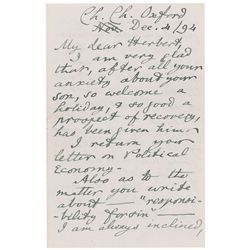 Ch. Ch. Oxford
Dec. 4/94
My dear Herbert,
I am very glad
that, after all your
anxiety about your
son, so welcome a
holiday, & so good a
prospect of recovery,
has been given him.
I return your
letter on Political
Economy.
Also as to the
matter you write
about — "responsi-
bility for sin" —
I am always inclined,